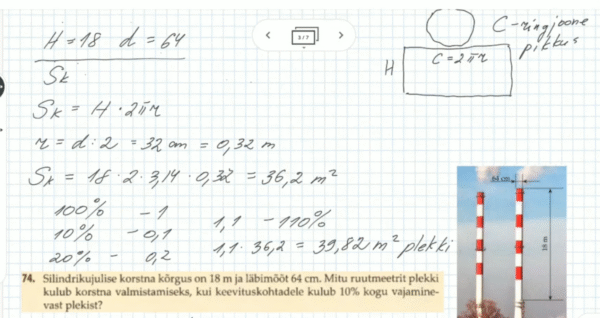 H = 18 d = 64
Sk
Sk = H · 2πr
r = d : 2 = 32 cm = 0,32 m
Sk = 18 · 2 · 3,14 · 0,32 = 36,2 m²
100% – 1
10% – 0,1
20% – 0,2
1,1 – 110%
1,1 · 36,2 = 39,82 m² plekki
3/7
C - ringjoone
pikkus
H
C = 2πr
64 cm
18 m
74. Silindrikujulise korstna kõrgus on 18 m ja läbimõõt 64 cm. Mitu ruutmeetrit plekki
kulub korstna valmistamiseks, kui keevituskohtadele kulub 10% kogu vajamine-
vast plekist?